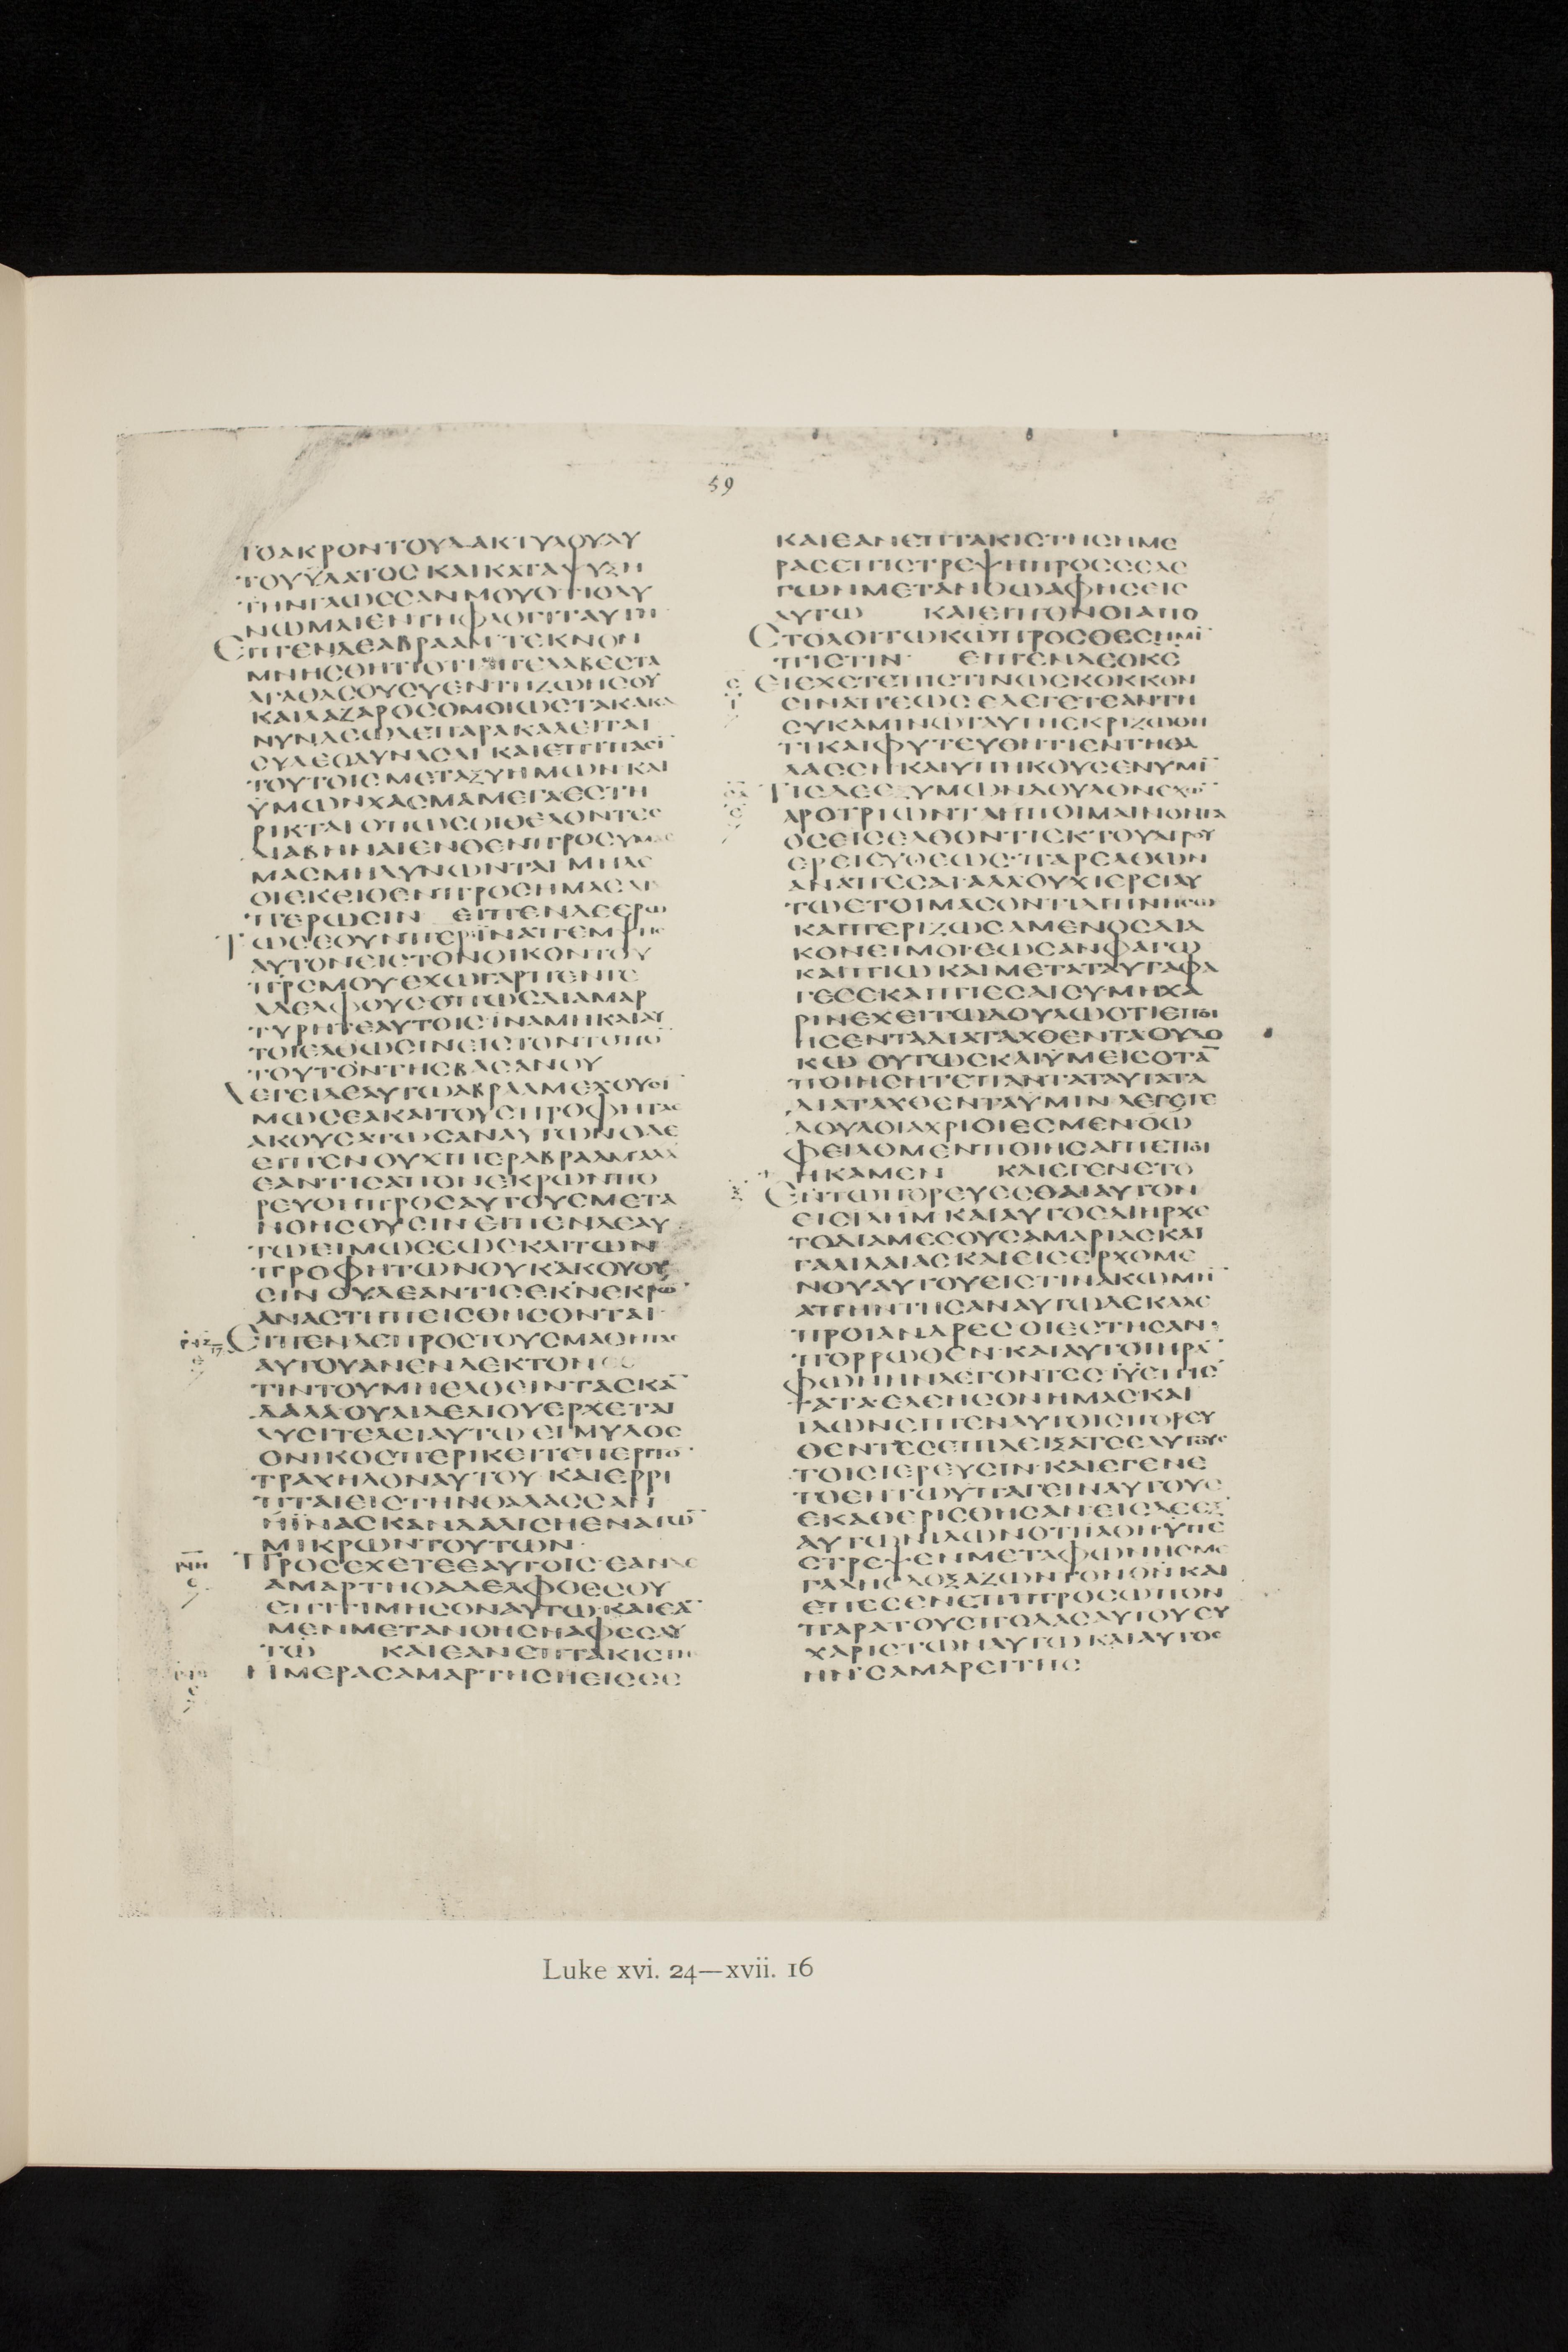 59
ΤΟΑΚΡΟΝΤΟΥΔΑΚΤΥΛΟΥΑΥ
ΤΟΥΫΔΑΤΟϹ ΚΑΙΚΑΤΑΨΥΞΗ
ΤΗΝΓΛΩϹϹΑΝΜΟΥΟΤΙΟΔΥ
ΝΩΜΑΙΕΝΤΗΦΛΟΓΙΤΑΥΤΗ
ΕΙΠΕΝΔΕΑΒΡΑΑΜ ΤΕΚΝΟΝ
ΜΝΗϹΘΗΤΙΟΤΙΑΠΕΛΑΒΕϹΤΑ
ΑΓΑΘΑϹΟΥϹΥΕΝΤΗΖΩΗϹΟΥ
ΚΑΙΛΑΖΑΡΟϹΟΜΟΙΩϹΤΑΚΑΚΑ
ΝΥΝΔΕΩΔΕΠΑΡΑΚΑΛΕΙΤΑΙ
ϹΥΔΕΟΔΥΝΑϹΑΙ ΚΑΙΕΠΙΠΑϹΙ
ΤΟΥΤΟΙϹ ΜΕΤΑΞΥΗΜΩΝΚΑΙ
ΫΜΩΝΧΑϹΜΑΜΕΓΑΕϹΤΗ
ΡΙΚΤΑΙ ΟΠΩϹΟΙΘΕΛΟΝΤΕϹ
ΔΙΑΒΗΝΑΙΕΝΘΕΝΠΡΟϹΥΜΑϹ
ΜΑϹΜΗΔΥΝΩΝΤΑΙ ΜΗΔΕ
ΟΙΕΚΕΙΘΕΝΠΡΟϹΗΜΑϹΔΙΑ
ΠΕΡΩϹΙΝ ΕΙΠΕΝΔΕΕΡΩ
ΤΩϹΕΟΥΝΠΕΡΪΝΑΠΕΜΨΗϹ
ΑΥΤΟΝΕΙϹΤΟΝΟΙΚΟΝΤΟΥ
ΠΡϹΜΟΥΕΧΩΓΑΡΠΕΝΤΕ
ΑΔΕΛΦΟΥϹΟΠΩϹΔΙΑΜΑΡ
ΤΥΡΗΤΕΑΥΤΟΙϹΪΝΑΜΗΚΑΙΑΥ
ΤΟΙΕΛΘΩϹΙΝΕΙϹΤΟΝΤΟΠΟ̅
ΤΟΥΤΟΝΤΗϹΒΑϹΑΝΟΥ
ΛΕΓΕΙΔΕΑΥΤΩΑΒΡΑΑΜΕΧΟΥϹΙ
ΜΩϹΕΑΚΑΙΤΟΥϹΠΡΟΦΗΤΑϹ
ΑΚΟΥϹΑΤΩϹΑΝΑΥΤΩΝΟΔΕ
ΕΙΠΕΝ ΟΥΧΙΠΕΡΑΒΡΑΑΜΑΛΛ
ΕΑΝΤΙϹΑΠΟΝΕΚΡΩΝΠΟ
ΡΕΥΘΗΠΡΟϹΑΥΤΟΥϹΜΕΤΑ
ΝΟΗϹΟΥϹΙΝ ΕΙΠΕΝΔΕΑΥ
ΤΩΕΙΜΩϹΕΩϹΚΑΙΤΩΝ
ΠΡΟΦΗΤΩΝΟΥΚΑΚΟΥΟΥ
ϹΙΝ ΟΥΔΕΑΝΤΙϹΕΚΝΕΚΡΩ̅
ΑΝΑϹΤΗΠΕΙϹΘΗϹΟΝΤΑΙ
ΕΙΠΕΝΔΕΠΡΟϹΤΟΥϹΜΑΘΗΤΑϹ
ΑΥΤΟΥΑΝΕΝΔΕΚΤΟΝΕϹ
ΤΙΝΤΟΥΜΗΕΛΘΕΙΝΤΑϹΚΑ̅
ΔΑΛΑΟΥΑΙΔΕΔΙΟΥΕΡΧΕΤΑΙ
ΛΥϹΙΤΕΛΕΙΑΥΤΩ ΕΙ ΜΥΛΟϹ
ΟΝΙΚΟϹΠΕΡΙΚΕΙΤΕΠΕΡΙΤΟ̅
ΤΡΑΧΗΛΟΝΑΥΤΟΥ ΚΑΙΕΡΡΙ
ΠΤΑΙΕΙϹΤΗΝΘΑΛΑϹϹΑΝ
ΗΪΝΑϹΚΑΝΔΑΛΙϹΗΕΝΑΤΩ̅
ΜΙΚΡΩΝΤΟΥΤΩΝ
ΡΝΗ ΠΡΟϹΕΧΕΤΕΕΑΥΤΟΙϹ ΕΑΝΔΕ
ΑΜΑΡΤΗΟΑΔΕΛΦΟϹϹΟΥ
ΕΠΙΤΙΜΗϹΟΝΑΥΤΩ ΚΑΙΕΑ̅
ΜΕΝΜΕΤΑΝΟΗϹΗΑΦΕϹΑΥ
ΤΩ ΚΑΙΕΑΝΕΠΤΑΚΙϹΤΗϹ
ΗΜΕΡΑϹΑΜΑΡΤΗϹΗΕΙϹϹΕ
ΚΑΙΕΑΝΕΠΤΑΚΙϹΤΗϹΗΜΕ
ΡΑϹΕΠΙϹΤΡΕΨΗΠΡΟϹϹΕΛΕ
ΓΩΝΜΕΤΑΝΟΩΑΦΗϹΕΙϹ
ΑΥΤΩ ΚΑΙΕΙΠΟΝΟΙΑΠΟ
ϹΤΟΛΟΙΤΩΚΩΠΡΟϹΘΕϹΗΜΙ̅
ΠΙϹΤΙΝ ΕΙΠΕΝΔΕΟΚϹ
ΕΙΕΧΕΤΕΠΙϹΤΙΝΩϹΚΟΚΚΟΝ
ϹΙΝΑΠΕΩϹ ΕΛΕΓΕΤΕΑΝΤΗ
ϹΥΚΑΜΙΝΩΤΑΥΤΗΕΚΡΙΖΩΘΗ
ΤΙΚΑΙΦΥΤΕΥΘΗΤΙΕΝΤΗΘΑ
ΛΑϹϹΗΚΑΙΥΠΗΚΟΥϹΕΝΥΜΙ̅
ΤΙϹΔΕΕΞΥΜΩΝΔΟΥΛΟΝΕΧΩ̅
ΑΡΟΤΡΙΩΝΤΑΗΠΟΙΜΑΙΝΟΝΤΑ
ΟϹΕΙϹΕΛΘΟΝΤΙΕΚΤΟΥΑΓΡΟΥ
ΕΡΕΙΕΥΘΕΩϹ ΠΑΡΕΛΘΩΝ
ΑΝΑΠΕϹΑΙ ΑΛΛΟΥΧΙΕΡΕΙΑΥ
ΤΩΕΤΟΙΜΑϹΟΝΤΙΔΙΠΝΗϹΩ
ΚΑΙΠΕΡΙΖΩϹΑΜΕΝΟϹΔΙΑ
ΚΟΝΕΙΜΟΙΕΩϹΑΝΦΑΓΩ
ΚΑΙΠΙΩ ΚΑΙΜΕΤΑΤΑΥΤΑΦΑ
ΓΕϹΕΚΑΙΠΙΕϹΑΙϹΥ ΜΗΧΑ
ΡΙΝΕΧΕΙΤΩΔΟΥΛΩΟΤΙΕΠΟΙ
ΗϹΕΝΤΑΔΙΑΤΑΧΘΕΝΤΑΟΥΔΟ
ΚΩ ΟΥΤΩϹΚΑΙΫΜΕΙϹΟΤΑ̅
ΠΟΙΗϹΗΤΕΠΑΝΤΑΤΑΥΤΑΤΑ
ΔΙΑΤΑΧΘΕΝΤΑΥΜΙΝ ΛΕΓΕΤΕ
ΔΟΥΛΟΙΑΧΡΙΟΙΕϹΜΕΝΟΩ
ΦΕΙΛΟΜΕΝΠΟΙΗϹΑΙΠΕΠΟΙ
ΗΚΑΜΕΝ ΚΑΙΕΓΕΝΕΤΟ
ΕΝΤΩΠΟΡΕΥΕϹΘΑΙΑΥΤΟΝ
ΕΙϹΙΛΗΜ ΚΑΙΑΥΤΟϹΔΙΗΡΧΕ
ΤΟΔΙΑΜΕϹΟΥϹΑΜΑΡΙΑϹΚΑΙ
ΓΑΛΙΛΑΙΑϹ ΚΑΙΕΙϹΕΡΧΟΜΕ
ΝΟΥΑΥΤΟΥΕΙϹΤΙΝΑΚΩΜΗ̅
ΑΠΗΝΤΗϹΑΝΑΥΤΩΔΕΚΑΛΕ
ΠΡΟΙΑΝΔΡΕϹ ΟΙΕϹΤΗϹΑΝ
ΠΟΡΡΩΘΕΝ ΚΑΙΑΥΤΟΙΗΡΑ̅
ΦΩΝΗΝΛΕΓΟΝΤΕϹ ΙΥΕΠΙϹ
ΤΑΤΑ ΕΛΕΗϹΟΝΗΜΑϹ ΚΑΙ
ΙΔΩΝΕΙΠΕΝΑΥΤΟΙϹΠΟΡΕΥ
ΘΕΝΤΕϹΕΠΙΔΕΙΞΑΤΕΕΑΥΤΟΥϹ
ΤΟΙϹΙΕΡΕΥϹΙΝ ΚΑΙΕΓΕΝΕ
ΤΟΕΝΤΩΥΠΑΓΕΙΝΑΥΤΟΥϹ
ΕΚΑΘΕΡΙϹΘΗϹΑΝ ΕΙϹΔΕΕΞ
ΑΥΤΩΝΙΔΩΝΟΤΙΙΑΘΗΫΠΕ
ϹΤΡΕΨΕΝΜΕΤΑΦΩΝΗϹΜΕ
ΓΑΛΗϹΔΟΞΑΖΩΝΤΟΝΘΝ ΚΑΙ
ΕΠΕϹΕΝΕΠΙΠΡΟϹΩΠΟΝ
ΠΑΡΑΤΟΥϹΠΟΔΑϹΑΥΤΟΥΕΥ
ΧΑΡΙϹΤΩΝΑΥΤΩ ΚΑΙΑΥΤΟϹ
ΗΝ ϹΑΜΑΡΕΙΤΗϹ
Luke xvi. 24—xvii. 16